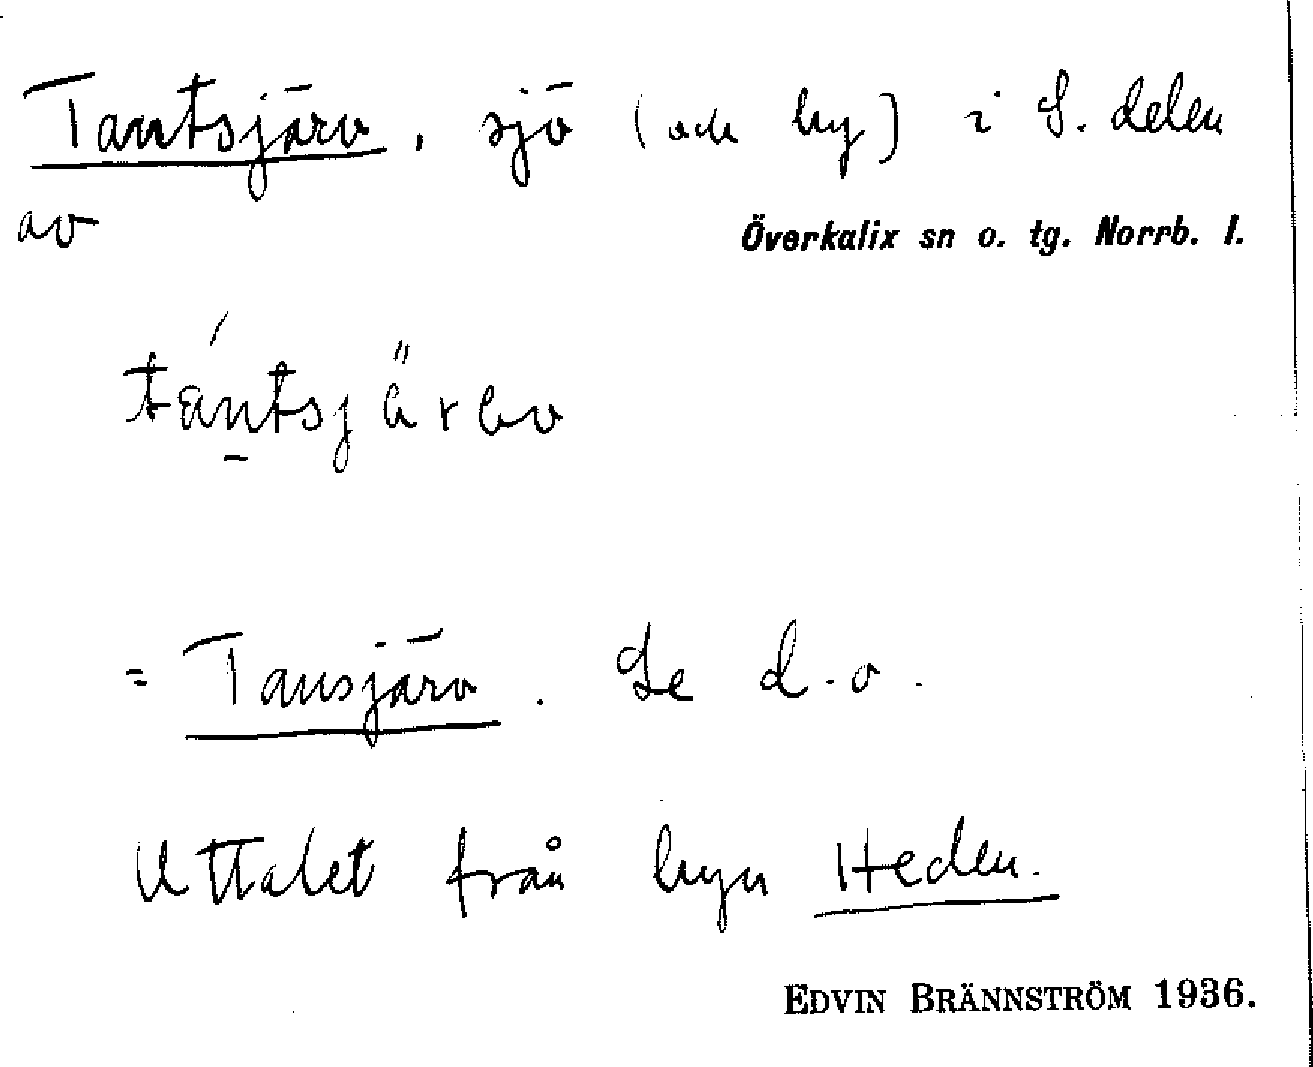 Tantsjärv, sjö (och by) i S. delen
av Överkalix sn o. tg. Norrb. l.
= Tansjärv. Se d.o.
Uttalet från byn Heden.
EDVIN BRÄNNSTRÖM 1936.